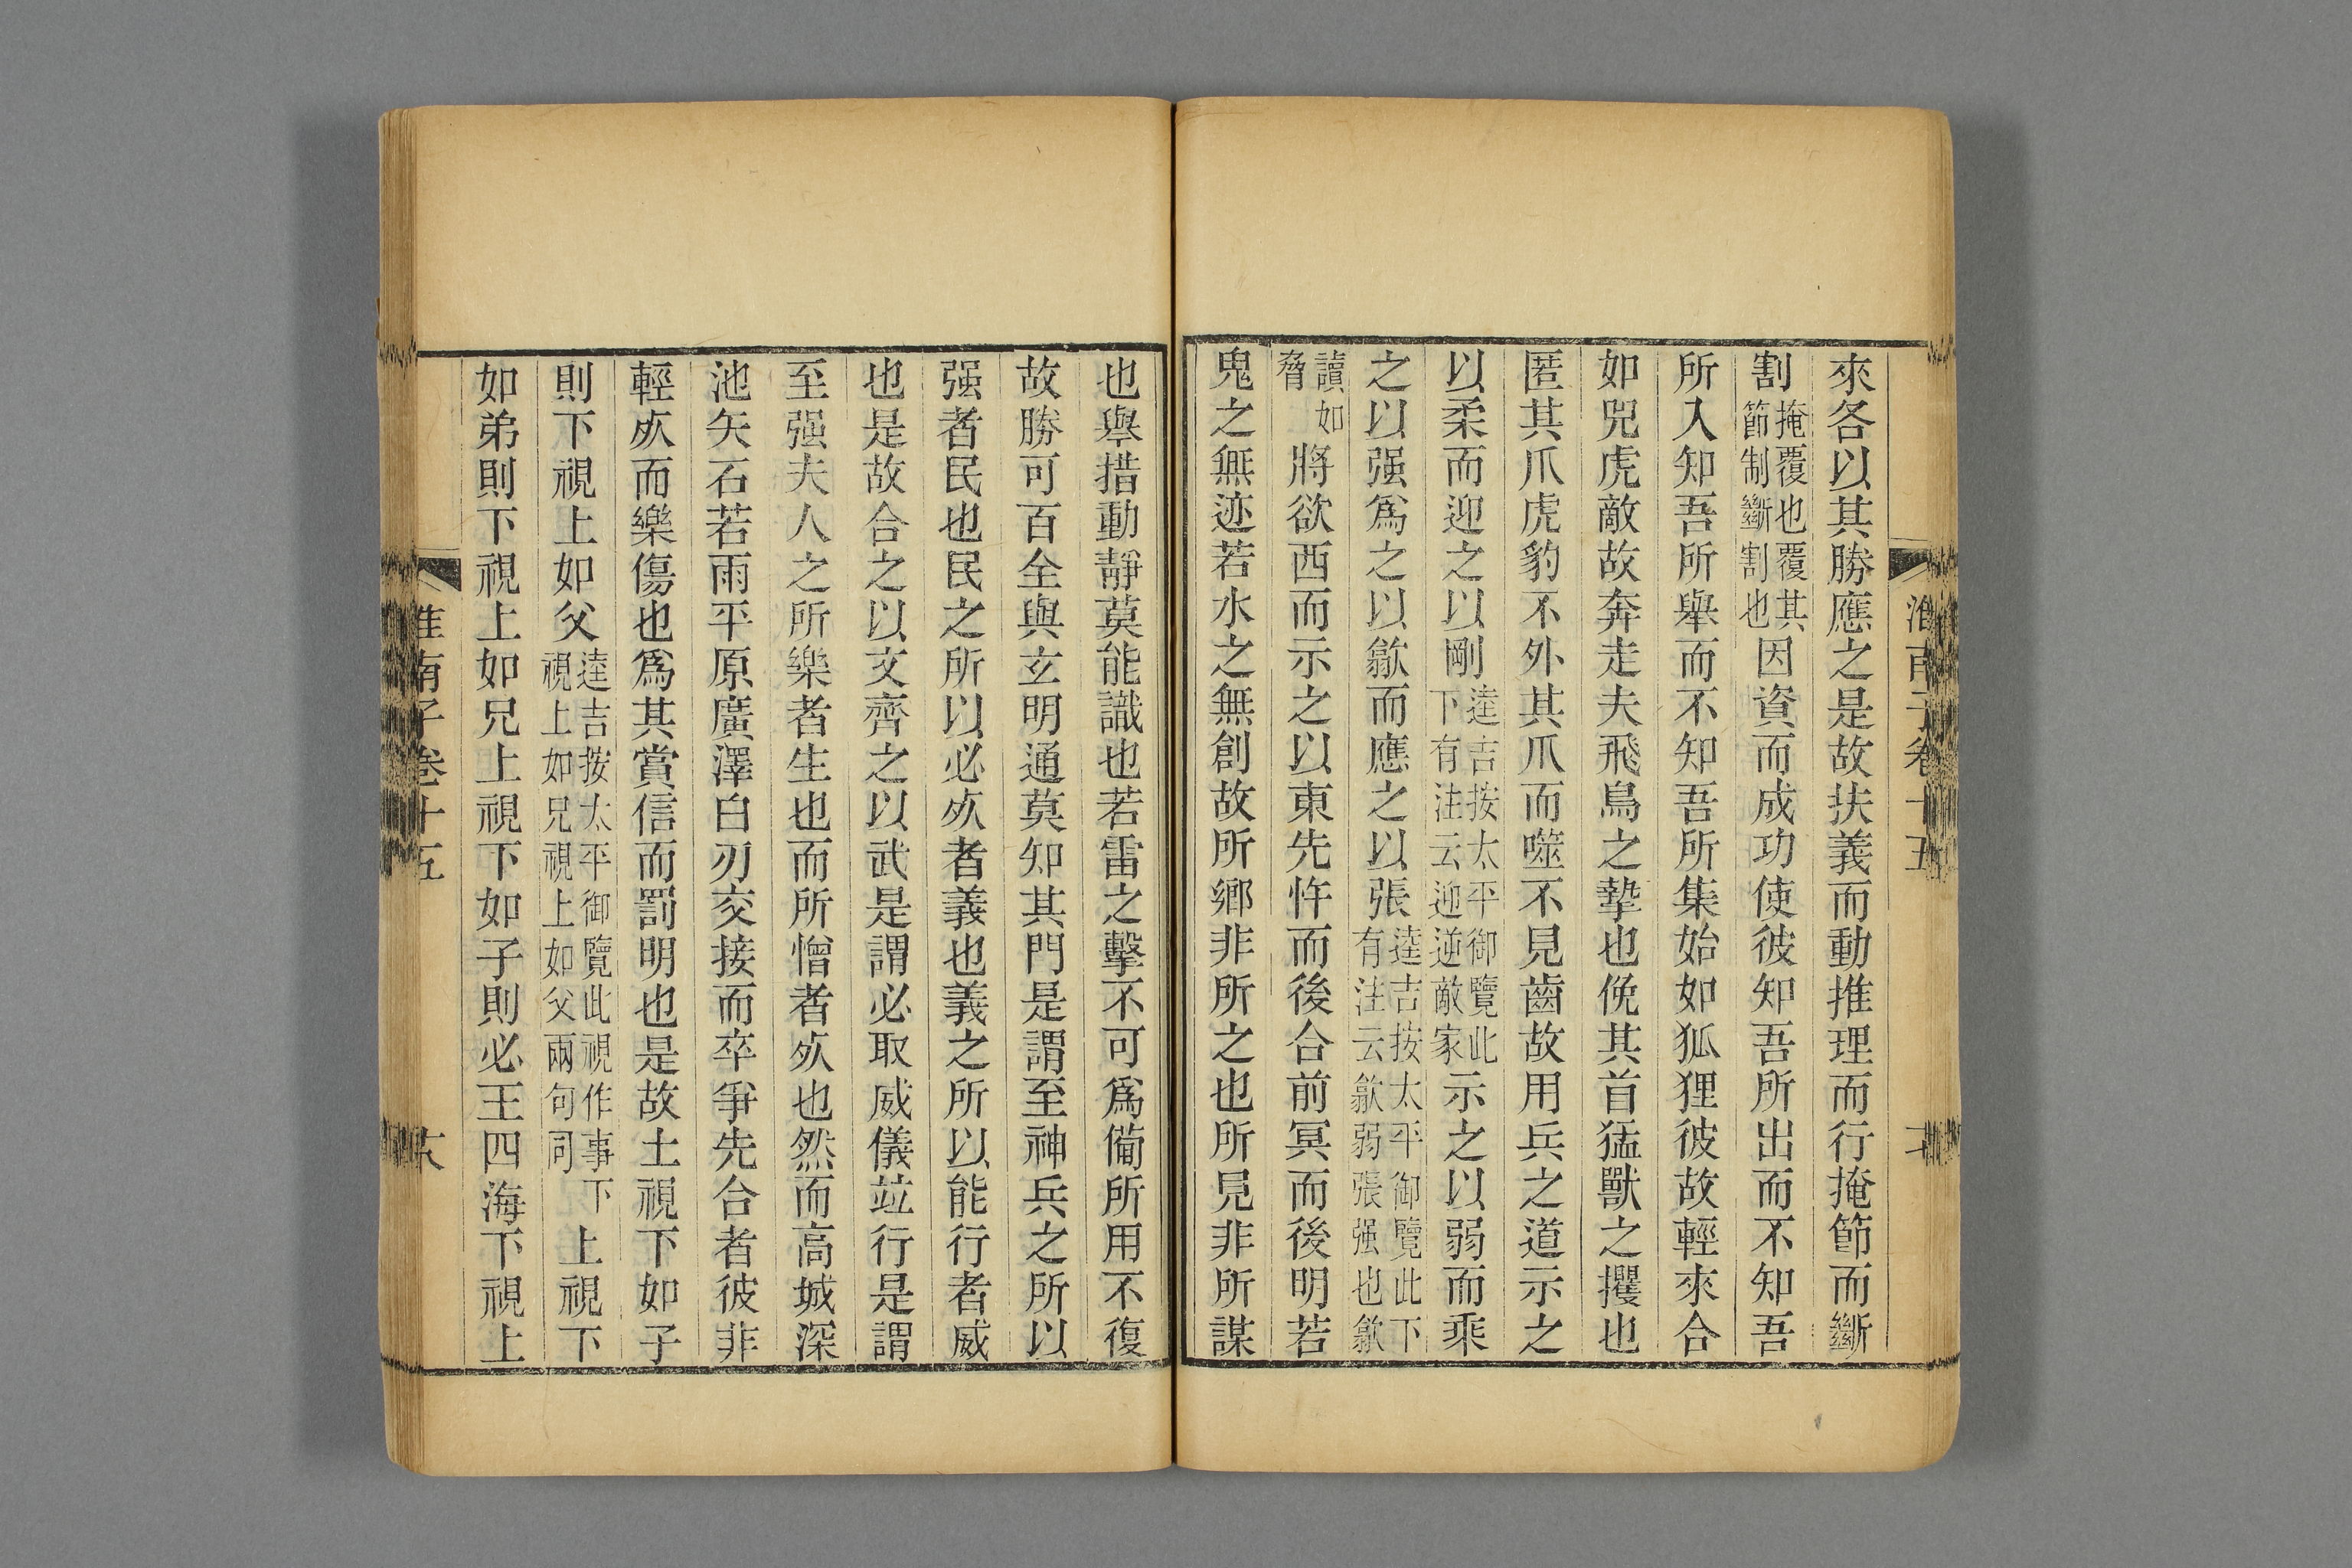 來各以其勝應之是故扶義而動推理而行掩節而斷
割掩覆也覆其節制斷割也因資而成功使彼知吾所出而不知吾
所入知吾所舉而不知吾所集始如狐狸彼故輕來合
如兕虎敵故奔走夫飛鳥之摯也俛其首猛獸之攫也
匿其爪虎豹不外其爪而噬不見齒故用兵之道示之
以柔而迎之以剛逵吉按太平御覽此下有注云迎逆敵家示之以弱而乘
之以强爲之以歙而應之以張逵吉按太平御覽此下有注云歙弱張强也歙
讀如脅將欲西而示之以東先忤而後合前冥而後明若
鬼之無迹若水之無創故所鄉非所之也所見非所謀
也舉措動靜莫能識也若雷之擊不可爲備所用不復
故勝可百全與玄明通莫知其門是謂至神兵之所以
强者民也民之所以必死者義也義之所以能行者威
也是故合之以文齊之以武是謂必取威儀竝行是謂
至强夫人之所樂者生也而所憎者死也然而高城深
池矢石若雨平原廣澤白刃交接而卒爭先合者彼非
輕死而樂傷也爲其賞信而罰明也是故上視下如子
則下視上如父逵吉按太平御覽此視作事下視上如兄視上如父兩句同上視下
如弟則下視上如兄上視下如子則必王四海下視上
淮南子卷十五